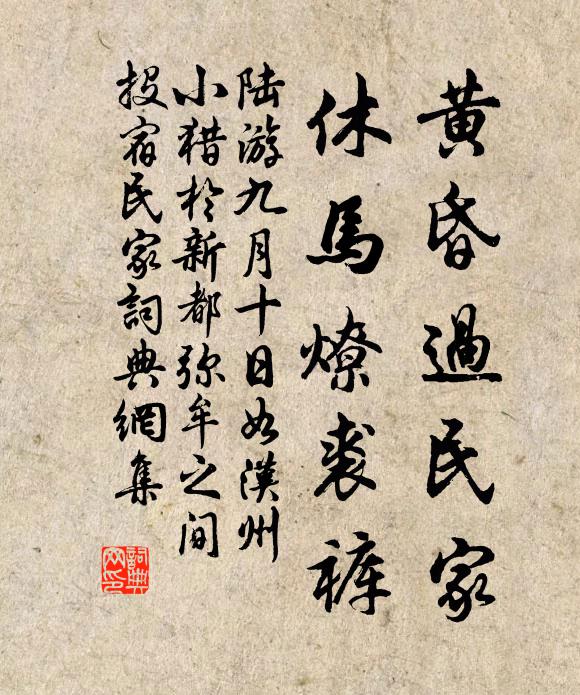 黄昏過民家
休馬燎裘裤
陆游九月十日如漢州
小猎於新都弥牟之间
投宿民家詞典網集
詞典网印